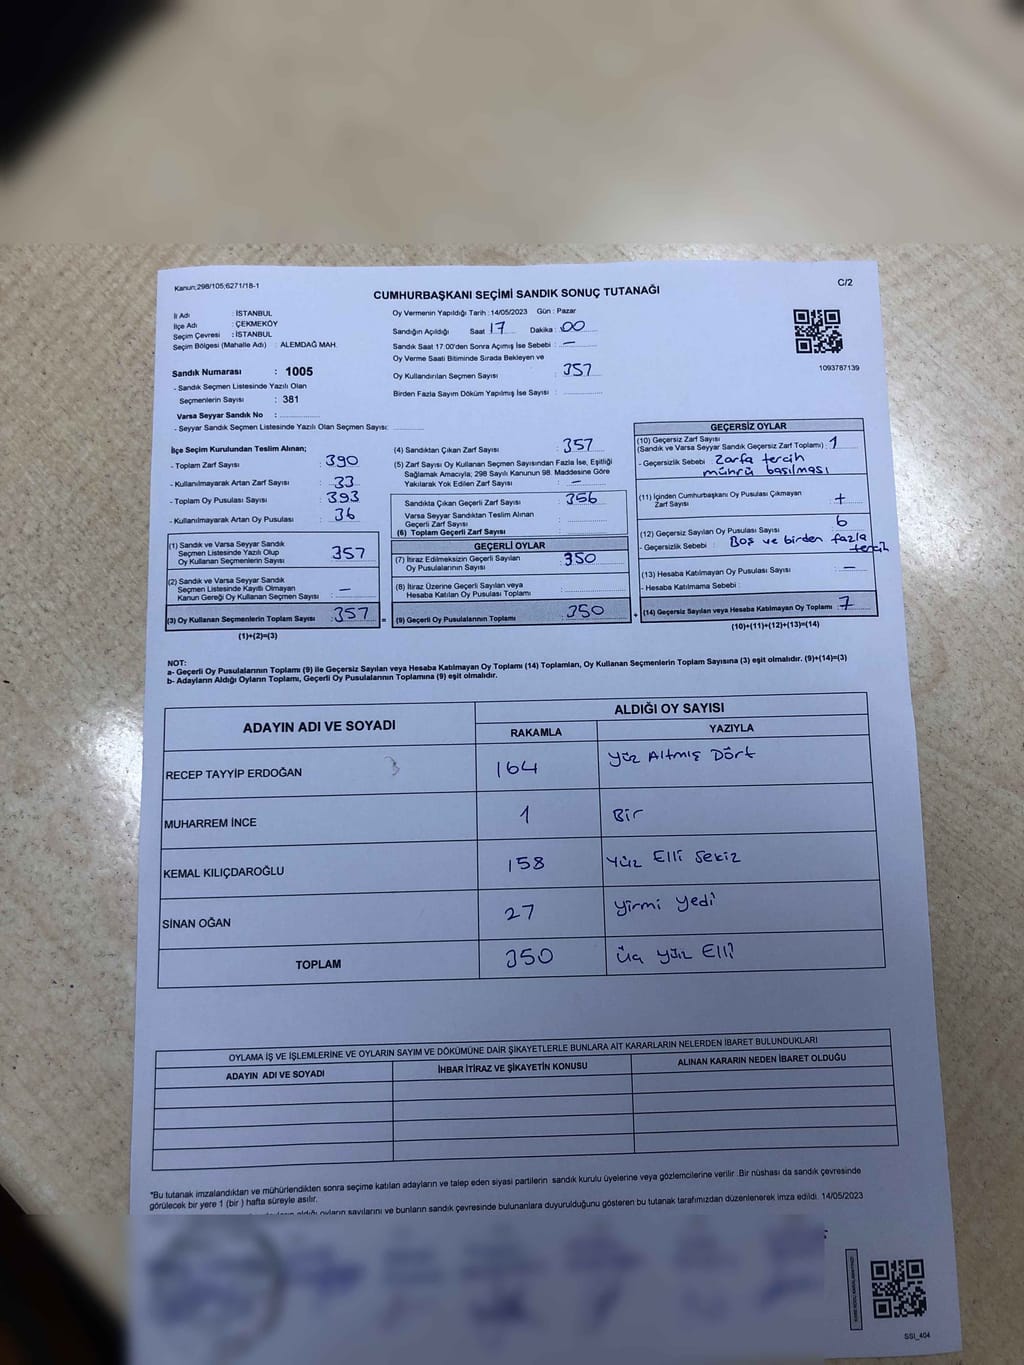 Kanun:298/105;6271/18-1
C/2
CUMHURBAŞKANI SEÇİMİ SANDIK SONUÇ TUTANAĞI
İl Adı : İSTANBUL
İlçe Adı : ÇEKMEKÖY
Seçim Çevresi : İSTANBUL
Seçim Bölgesi (Mahalle Adı) : ALEMDAĞ MAH.
Sandık Numarası : 1005
- Sandık Seçmen Listesinde Yazılı Olan
Seçmenlerin Sayısı : 381
Varsa Seyyar Sandık No :
- Seyyar Sandık Seçmen Listesinde Yazılı Olan Seçmen Sayısı:
Oy Vermenin Yapıldığı Tarih : 14/05/2023 Gün : Pazar
Sandığın Açıldığı Saat 17 Dakika : 00
Sandık Saat 17.00'den Sonra Açımış İse Sebebi : —
Oy Verme Saati Bitiminde Sırada Bekleyen ve
Oy Kullandırılan Seçmen Sayısı : 357
Birden Fazla Sayım Döküm Yapılmış İse Sayısı :
1093787139
İlçe Seçim Kurulundan Teslim Alınan;
- Toplam Zarf Sayısı : 390
- Kullanılmayarak Artan Zarf Sayısı : 33
- Toplam Oy Pusulası Sayısı : 393
- Kullanılmayarak Artan Oy Pusulası : 36
(1) Sandık ve Varsa Seyyar Sandık
Seçmen Listesinde Yazılı Olup
Oy Kullanan Seçmenlerin Sayısı : 357
(2) Sandık ve Varsa Seyyar Sandık
Seçmen Listesinde Kayıtlı Olmayan
Kanun Gereği Oy Kullanan Seçmen Sayısı : —
(3) Oy Kullanan Seçmenlerin Toplam Sayısı : 357 =
(1)+(2)=(3)
(4) Sandıktan Çıkan Zarf Sayısı : 357
(5) Zarf Sayısı Oy Kullanan Seçmen Sayısından Fazla İse, Eşitliği
Sağlamak Amacıyla; 298 Sayılı Kanunun 98. Maddesine Göre
Yakılarak Yok Edilen Zarf Sayısı : —
Sandıkta Çıkan Geçerli Zarf Sayısı : 356
Varsa Seyyar Sandıktan Teslim Alınan
Geçerli Zarf Sayısı :
(6) Toplam Geçerli Zarf Sayısı :
GEÇERLİ OYLAR
(7) İtiraz Edilmeksizin Geçerli Sayılan
Oy Pusulalarının Sayısı : 350
(8) İtiraz Üzerine Geçerli Sayılan veya
Hesaba Katılan Oy Pusulası Toplamı :
(9) Geçerli Oy Pusulalarının Toplamı : 350 +
GEÇERSİZ OYLAR
(10) Geçersiz Zarf Sayısı
(Sandık ve Varsa Seyyar Sandık Geçersiz Zarf Toplamı) : 1
- Geçersizlik Sebebi : Zarfa tercih
mührü basılması
(11) İçinden Cumhurbaşkanı Oy Pusulası Çıkmayan
Zarf Sayısı :
(12) Geçersiz Sayılan Oy Pusulası Sayısı : 6
- Geçersizlik Sebebi : Boş ve birden fazla
tercih
(13) Hesaba Katılmayan Oy Pusulası Sayısı : —
- Hesaba Katılmama Sebebi :
(14) Geçersiz Sayılan veya Hesaba Katılmayan Oy Toplamı : 7
(10)+(11)+(12)+(13)=(14)
NOT:
a- Geçerli Oy Pusulalarının Toplamı (9) ile Geçersiz Sayılan veya Hesaba Katılmayan Oy Toplamı (14) Toplamları, Oy Kullanan Seçmenlerin Toplam Sayısına (3) eşit olmalıdır. (9)+(14)=(3)
b- Adayların Aldığı Oyların Toplamı, Geçerli Oy Pusulalarının Toplamına (9) eşit olmalıdır.
ADAYIN ADI VE SOYADI
ALDIĞI OY SAYISI
RAKAMLA YAZIYLA
RECEP TAYYİP ERDOĞAN 164 Yüz Altmış Dört
MUHARREM İNCE 1 Bir
KEMAL KILIÇDAROĞLU 158 Yüz Elli Sekiz
SİNAN OĞAN 27 Yirmi Yedi
TOPLAM 350 Üç Yüz Elli
OYLAMA İŞ VE İŞLEMLERİNE VE OYLARIN SAYIM VE DÖKÜMÜNE DAİR ŞİKAYETLERLE BUNLARA AİT KARARLARIN NELERDEN İBARET BULUNDUKLARI
ADAYIN ADI VE SOYADI İHBAR İTİRAZ VE ŞİKAYETİN KONUSU ALINAN KARARIN NEDEN İBARET OLDUĞU
*Bu tutanak imzalandıktan ve mühürlendikten sonra seçime katılan adayların ve talep eden siyasi partilerin sandık kurulu üyelerine veya gözlemcilerine verilir .Bir nüshası da sandık çevresinde
görülecek bir yere 1 (bir ) hafta süreyle asılır.
aldığı oyların sayılarını ve bunların sandık çevresinde bulunanlara duyurulduğunu gösteren bu tutanak tarafımızdan düzenlenerek imza edildi. 14/05/2023
SSI_404